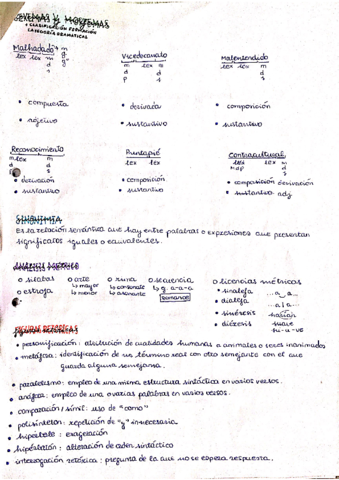 LEXEMAS Y MORFEMAS
+ CLASIFICACIÓN FORMACIÓN
CATEGORÍA GRAMATICAL
Malhadado + m
lex lex m g
d g
s
Vicedecanato
m lex m
d d
p s
Malentendido
lex lex m
d
s
• compuesta
• derivada
• composición
• adjetivo
• sustantivo
• sustantivo
Reconocimiento
m lex m
d d
p s
Puntapié
lex lex
Contracultural
lex m
mdp d
s
• derivación
• composición
• composición derivación
• sustantivo
• sustantivo
• sustantivo adj
SINONIMIA
Es la relación semántica que hay entre palabras o expresiones que presentan
significados iguales o equivalentes.
ANÁLISIS MÉTRICO
o sílabas o arte o rima o secuencia o licencias métricas
o estrofa ↳ mayor ↳ consonante ↳ 8 a-a-a • sinalefa ...a_a...
↳ menor ↳ asonante romance • dialefa ...a/a...
• sinéresis había
• diéresis suave
su-a-ve
FIGURAS RETÓRICAS
• personificación: atribución de cualidades humanas a animales o seres inanimados
• metáfora: identificación de un término real con otro semejante con el que
guarda alguna semejanza.
• paralelismo: empleo de una misma estructura sintáctica en varios versos.
• anáfora: empleo de una o varias palabras en varios versos.
• comparación/símil: uso de "como"
• polisíndeton: repetición de "y" innecesaria
• hipérbole: exageración
• hipérbaton: alteración de orden sintáctico
• interrogación retórica: pregunta de la que no se espera respuesta.